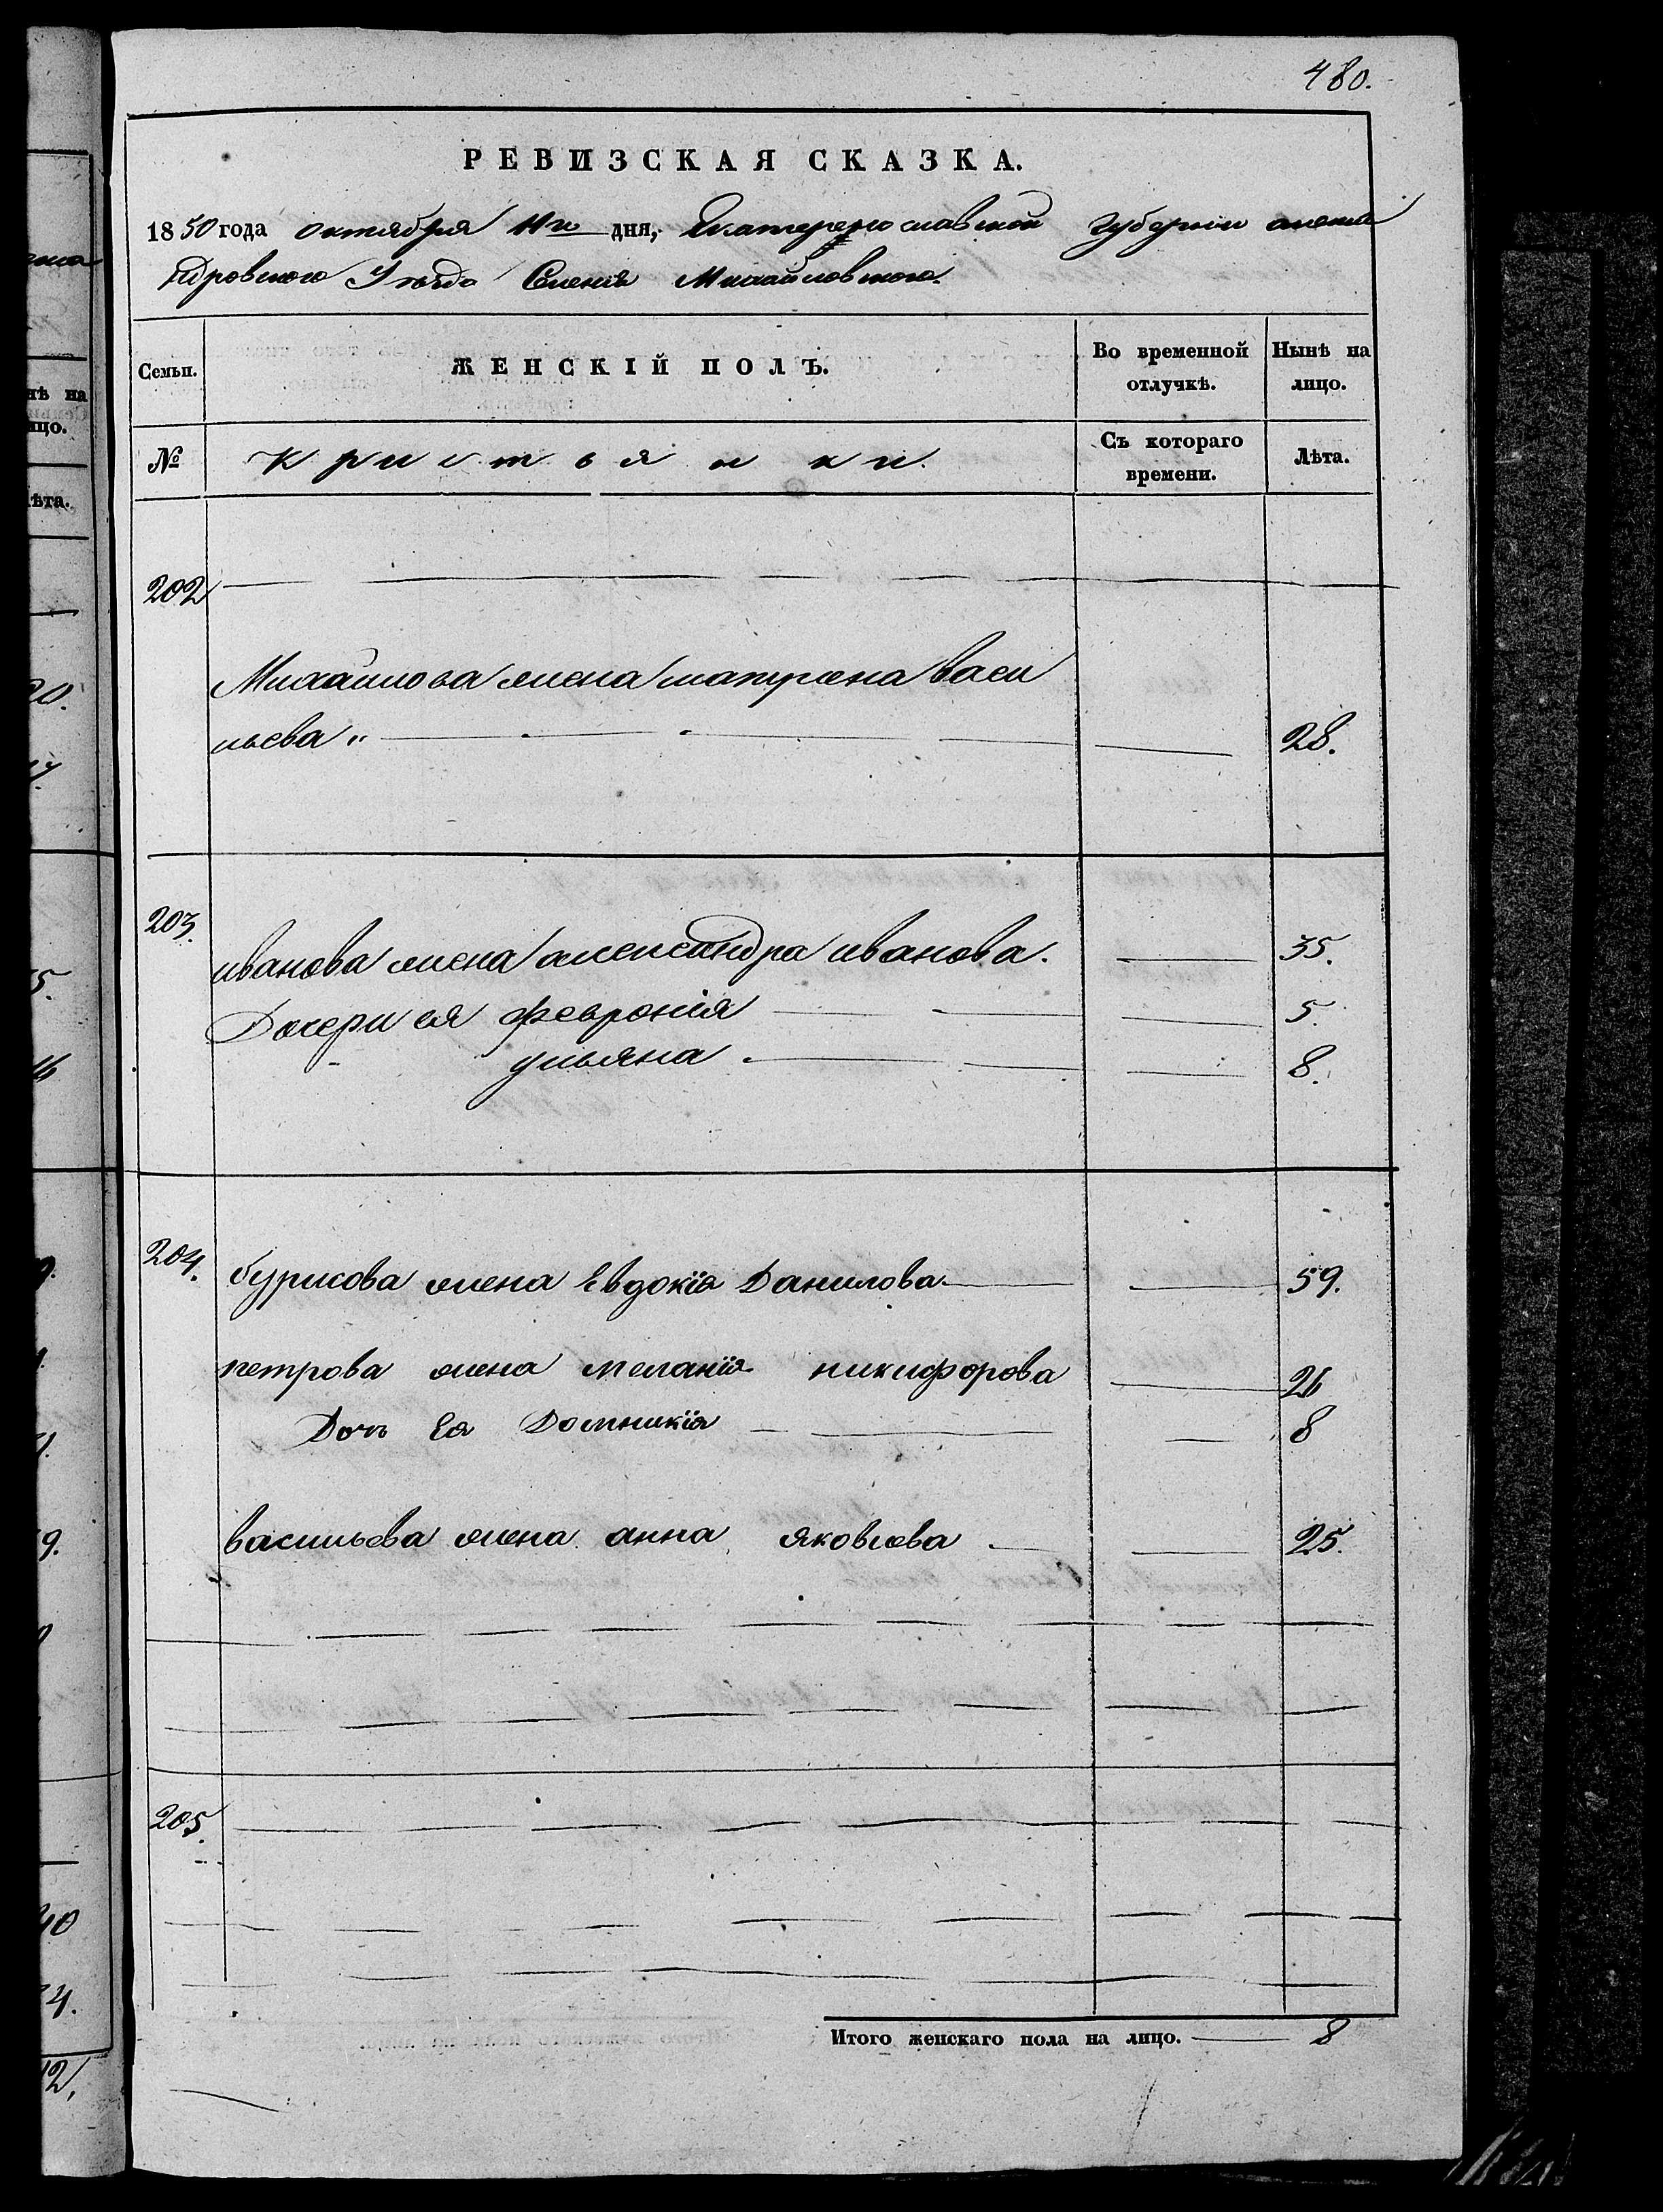 480.
РЕВИЗСКАЯ СКАЗКА.
1850 года октября 11го дня, Екатеринославской губернии алекса
ндровского Уезда Селения Михайловского.
Семьи. ЖЕНСКІЙ ПОЛЪ. Во временной отлучкѣ. Нынѣ на лицо.
№ Кристьянки. Съ котораго времени. Лѣта.
202
Михайлова жена матрена васи
льева " 28.
203.
иванова жена александра иванова. 35.
Дочери ея феврония 5.
ульяна 8.
204. бурисова жена Евдокія Данилова 59.
петрова жена меланія никифорова 26
Дочь Ея Домникія 8
васильева жена анна яковлева 25.
205.
Итого женскаго пола на лицо. 8